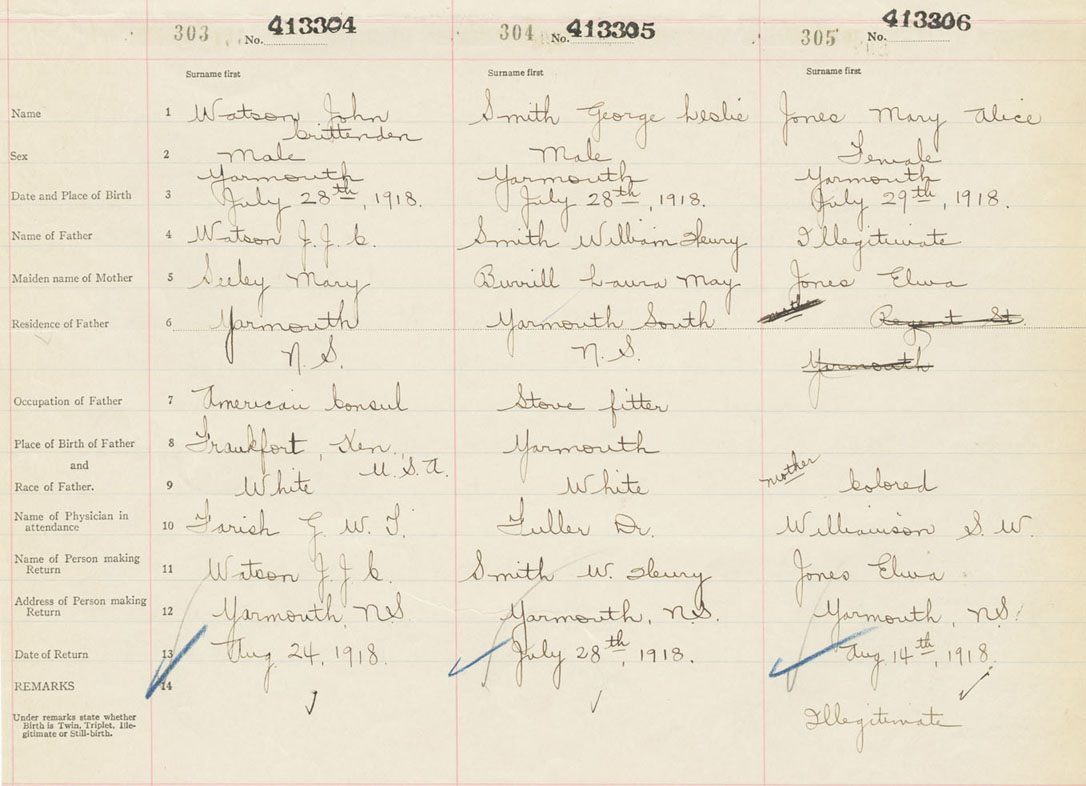 303 No. 413304 304 No. 413305 305 No. 413306
Surname first Surname first Surname first
Name 1 Watson John Crittenden Smith George Leslie Jones Mary Alice
Sex 2 Male Male Female
Yarmouth Yarmouth Yarmouth
Date and Place of Birth 3 July 28th, 1918. July 28th, 1918. July 29th, 1918.
Name of Father 4 Watson J. J. C. Smith William Henry Illegitimate
Maiden name of Mother 5 Seeley Mary Burrill Laura May Jones Elva
Residence of Father 6 Yarmouth Yarmouth South mother Regent St.
N. S. N. S. Yarmouth
Occupation of Father 7 American Consul Stove fitter
Place of Birth of Father 8 Frankfort, Ken., Yarmouth
and U. S. A.
Race of Father. 9 White White mother Colored
Name of Physician in attendance 10 Farish G. W. T. Fuller Dr. Williamson S. W.
Name of Person making Return 11 Watson J. J. C. Smith W. Henry Jones Elva
Address of Person making Return 12 Yarmouth, N.S. Yarmouth, N.S. Yarmouth, N.S.
Date of Return 13 Aug 24, 1918. July 28th, 1918. Aug 14th, 1918.
REMARKS 14
Under remarks state whether
Birth is Twin, Triplet, Ille-
gitimate or Still-birth.
Illegitimate